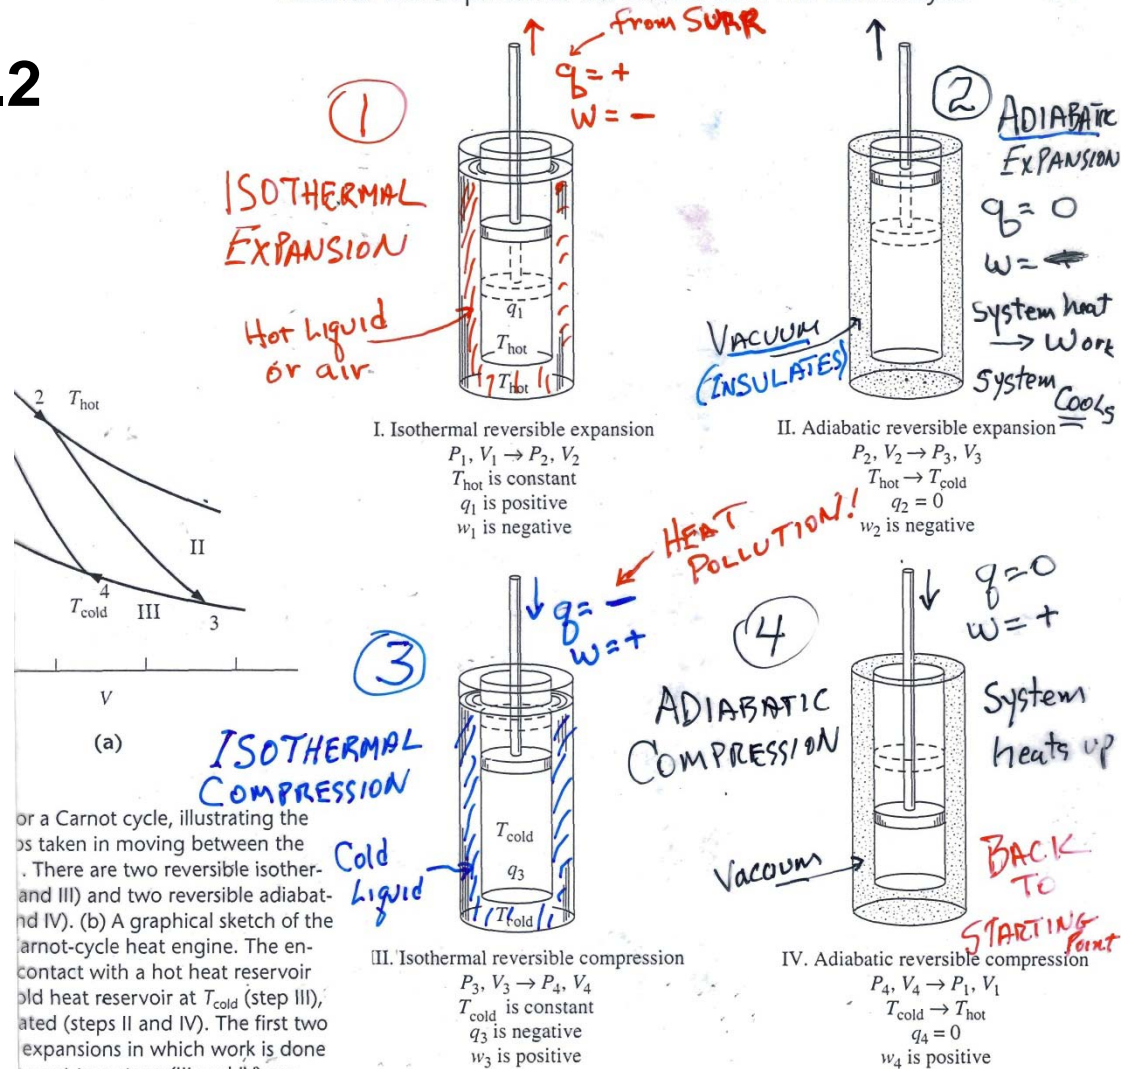 .2
from SURR
q = +
w = -
①
ISOTHERMAL
EXPANSION
Hot Liquid
or air
q₁
T_hot
T_hot
I. Isothermal reversible expansion
P₁, V₁ → P₂, V₂
T_hot is constant
q₁ is positive
w₁ is negative
②
ADIABATIC
EXPANSION
q = 0
w =
System heat
→ Work
System
Cools
VACUUM
(INSULATES)
II. Adiabatic reversible expansion
P₂, V₂ → P₃, V₃
T_hot → T_cold
q₂ = 0
w₂ is negative
2
T_hot
II
4
T_cold
III
3
V
(a)
HEAT
POLLUTION!
q = -
w = +
③
ISOTHERMAL
COMPRESSION
Cold
Liquid
T_cold
q₃
T_cold
II. Isothermal reversible compression
P₃, V₃ → P₄, V₄
T_cold is constant
q₃ is negative
w₃ is positive
④
ADIABATIC
COMPRESSION
q = 0
w = +
System
heats up
Vacuum
BACK
TO
STARTING
Point
IV. Adiabatic reversible compression
P₄, V₄ → P₁, V₁
T_cold → T_hot
q₄ = 0
w₄ is positive
or a Carnot cycle, illustrating the
os taken in moving between the
. There are two reversible isother-
and III) and two reversible adiabat-
nd IV). (b) A graphical sketch of the
arnot-cycle heat engine. The en-
contact with a hot heat reservoir
old heat reservoir at T_cold (step III),
ated (steps II and IV). The first two
expansions in which work is done